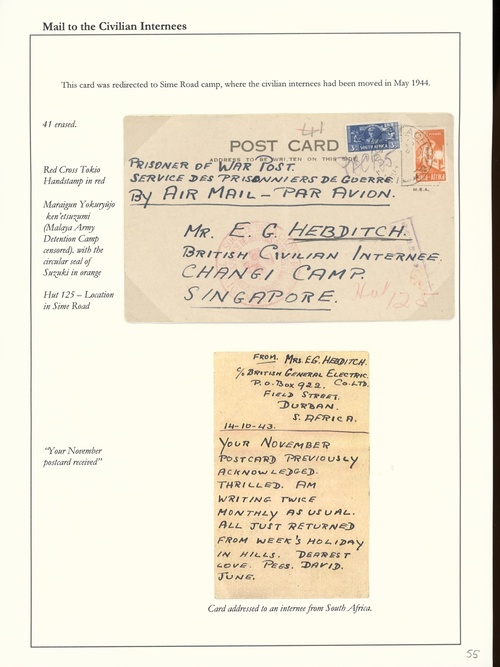 Mail to the Civilian Internees
This card was redirected to Sime Road camp, where the civilian internees had been moved in May 1944.
41 erased.
Red Cross Tokio
Handstamp in red
Maraigun Yokuryūjo
ken'etsuzumi
(Malaya Army
Detention Camp
censored). with the
circular seal of
Suzuki in orange
Hut 125 – Location
in Sime Road
"Your November
postcard received"
41
POST CARD
ADDRESS TO BE WRITTEN ON THIS SIDE
SOUTH AFRICA
PRISONER OF WAR POST.
SERVICE DES PRISONNIERS DE GUERRE.
BY AIR MAIL – PAR AVION.
MR. E. G. HEBDITCH.
BRITISH CIVILIAN INTERNEE.
CHANGI CAMP.
SINGAPORE.
Hut 125
FROM. MRS. E.G. HEBDITCH.
C/o BRITISH GENERAL ELECTRIC.
P.O. BOX 922. CO. LTD.
FIELD STREET.
DURBAN.
S. AFRICA.
14-10-43.
YOUR NOVEMBER
POSTCARD PREVIOUSLY
ACKNOWLEDGED.
THRILLED. AM
WRITING TWICE
MONTHLY AS USUAL.
ALL JUST RETURNED
FROM WEEK'S HOLIDAY
IN HILLS. DEAREST
LOVE. PEGS. DAVID.
JUNE.
Card addressed to an internee from South Africa.
55